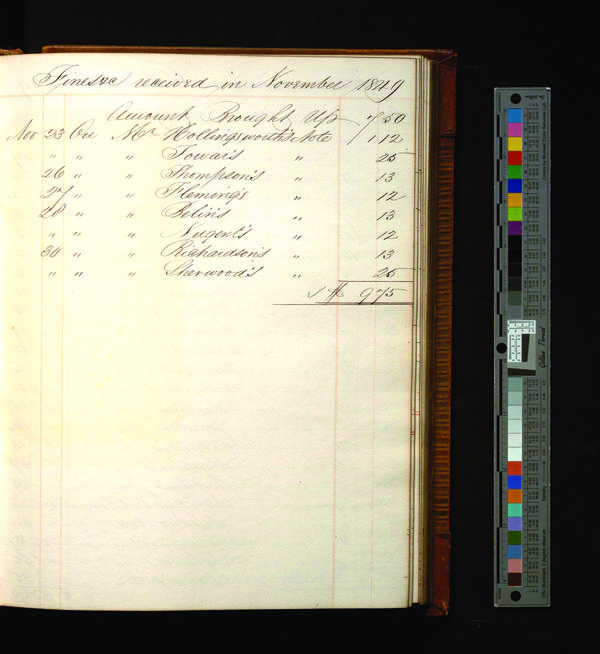 Fines &c received in November 1849
Amount Brought Up 7 50
Nov 23 On Mr Hollingsworth's Note 1 12
" " " Towar's " 25
26 " " Thompson's " 13
27 " " Fleming's " 12
28 " " Belin's " 13
" " " Nugent's " 12
30 " " Richardson's " 13
" " " Sherwood's " 25
$ 9 75